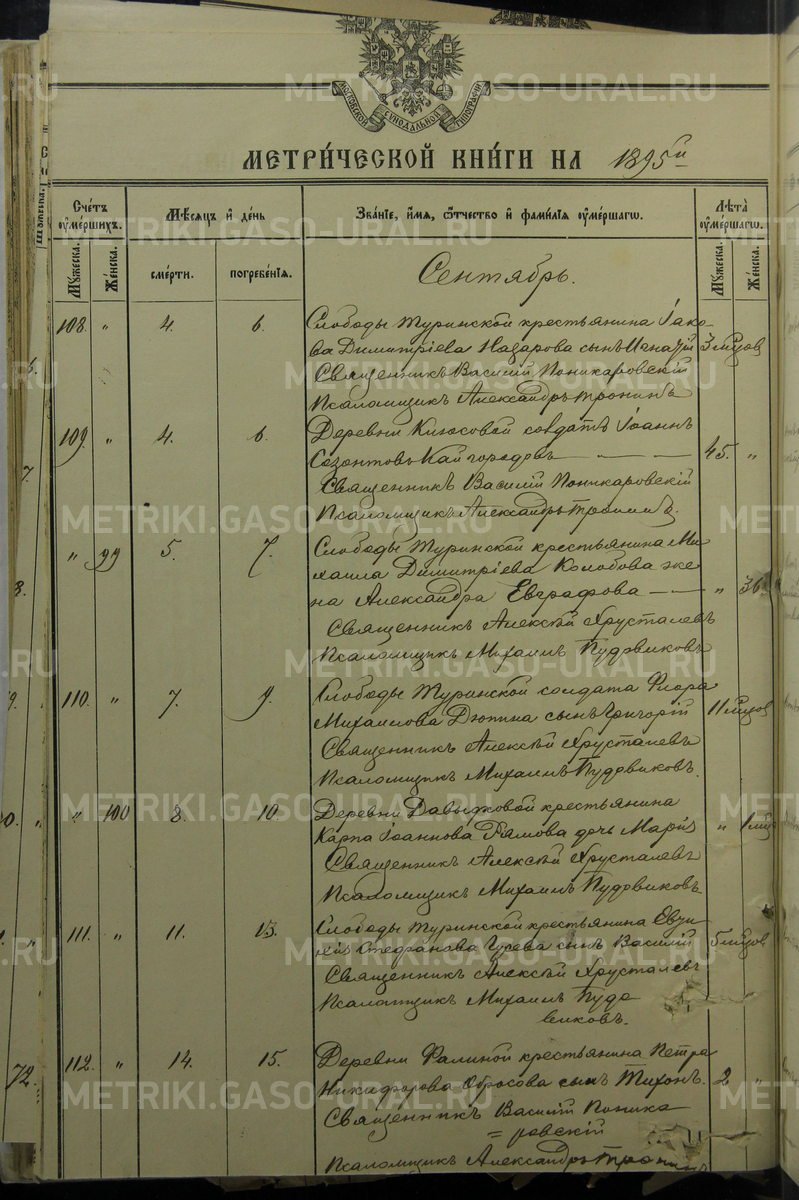 METRIKI.GASO-URAL.RU
МОСКОВСКОЙ СѴНОДАЛЬНОЙ ТИПОГРАФІИ
МЕТРИ́ЧЕСКОЙ КНИ́ГИ НА 1895й
Сче́тъ ᲂу҆ме́ршихъ. Мѣ́сяцъ и҆ де́нь Зва́нїе, и҆́мя, ѻ҆́тчество и҆ фами́лїя ᲂу҆ме́ршагѡ. Лѣ́та ᲂу҆ме́ршагѡ.
Мꙋ́жеска. Же́нска. сме́рти. погребе́нїя. Мꙋ́жеска. Же́нска.
Сентябрь.
108. " 4. 6. Слободы Туринской крестьянина Іако-
ва Димитріева Назарова сынъ Игнатій 3 мѣсцов
Священникъ Василій Поникаровскій
Псаломщикъ Александръ Тронинъ
109. " 4. 6. Деревни Клюсовой солдатъ Іоаннъ
Созонтовъ Кайгородовъ — — — 45. "
Священникъ Василій Поникаровскій
Псаломщикъ Александръ Тронинъ.
" 99 5. 7. Слободы Туринской крестьянина Ми-
хаила Димитріева Колобова же
на Александра Евграфова — — " 36
Священникъ Алексѣй Хрусталевъ
Псаломщикъ Михаилъ Пудовиковъ
110. " 7. 9. Слободы Туринской солдата Флора
Михаилова Дюпина сынъ Григорій 11 мѣсцов
Священникъ Алексѣй Хрусталевъ
Псаломщикъ Михаилъ Пудовиковъ.
" 100 8. 10. Деревни Давыдковой крестьянина
Карпа Іоаннова дочь Марія " 1 мѣс
Священникъ Алексѣй Хрусталевъ
Псаломщикъ Михаилъ Пудовиковъ
111. " 11. 13. Слободы Туринской крестьянина
Стефанова Гусева сынъ Василій 5 мѣсцов
Священникъ Алексѣй Хрусталевъ
Псаломщикъ Михаилъ Пудо
виковъ.
112. " 14. 15. Деревни Фалиной крестьянина Петра
Никифорова Обросова сынъ Тихонъ. 2 "
Священникъ Василій Поника
= ровскій
Псаломщикъ Александръ Тронинъ
72.